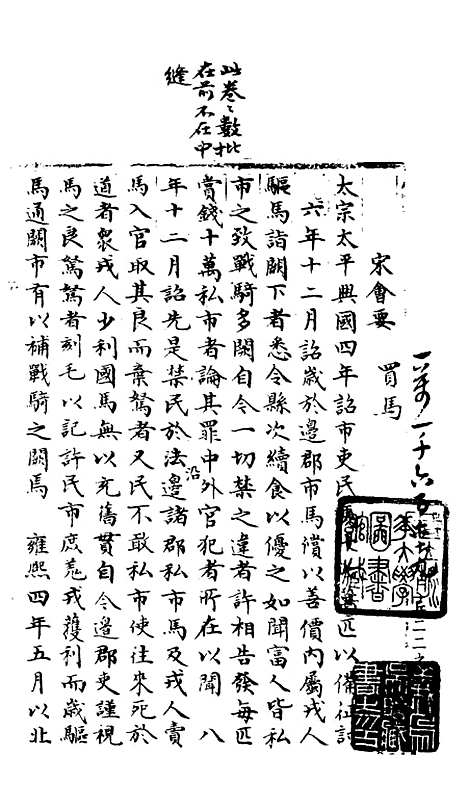 此卷之數批
在前不在中
縫
宋會要
買馬
太宗太平興國四年詔市吏民馬
匹以備征討
六年十二月詔歲於邊郡市馬償以善價內屬戎人
驅馬詣闕下者悉令縣次續食以優之如聞富人皆私
市之致戰騎多闕自今一切禁之違者許相告發每匹
賞錢十萬私市者論其罪中外官犯者所在以聞　八
年十二月詔先是禁民於法邊諸郡私市馬及戎人賣
沿
馬入官取其良而棄駑者又民不敢私市使往來死於
道者眾戎人少利國馬無以充舊貫自今邊郡吏謹視
馬之良駑駑者刻毛以記許民市庶羌戎獲利而歲驅
馬通關市有以補戰騎之闕焉　雍熙四年五月以北